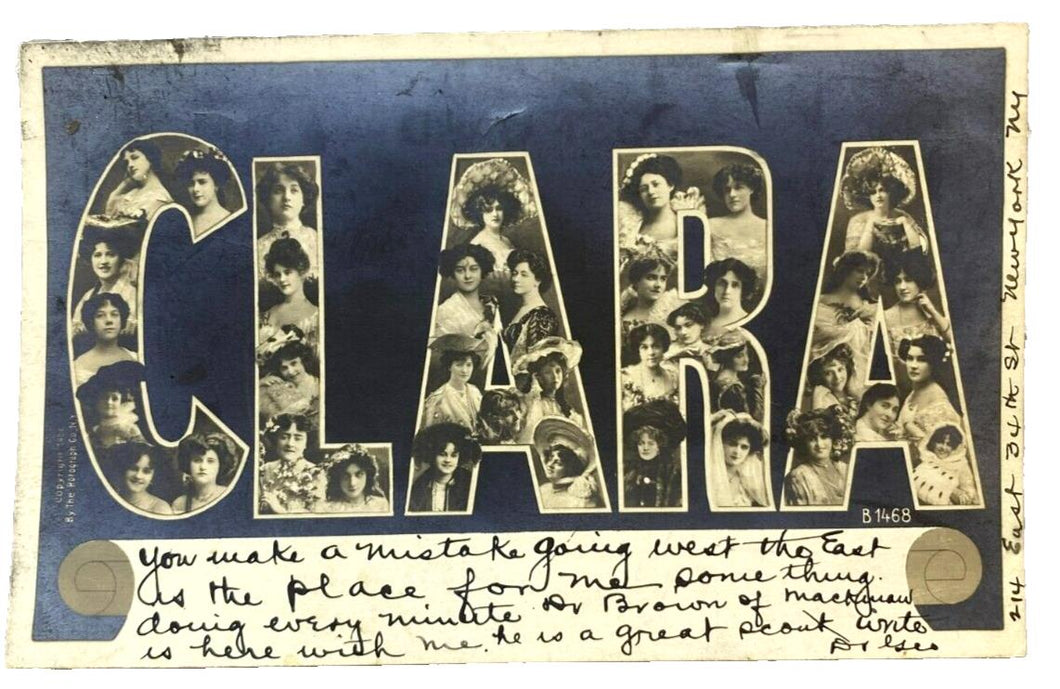 CLARA
By The Rotograph Co. N.Y.
B 1468
You make a mistake going west the East
is the place for me some thing
doing every minute Dr Brown of Mackinaw
is here with me. he is a great scout write
214 East 34th St New York NY